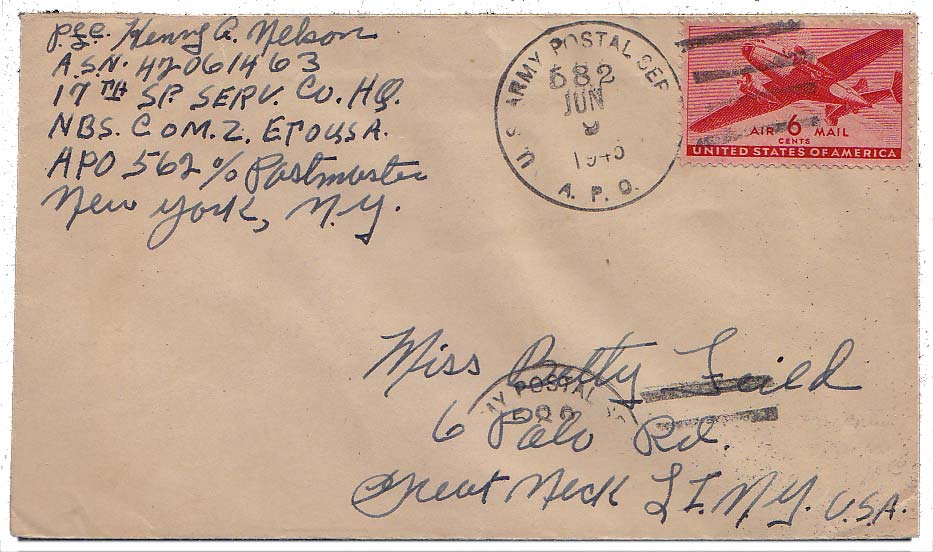 Pfc. Henry A. Nelson
A.S.N. 42061463
17TH SP. SERV. CO. HQ.
NBS. COM. Z. ETOUSA
APO 562 % Postmaster
New York, N.Y.
U.S. ARMY POSTAL SER
JUN
A. P. O.
AIR 6 MAIL
CENTS
UNITED STATES OF AMERICA
Miss Betty
MY POSTAL
6 Polo Rd.
Great Neck L I. N Y. U.S.A.